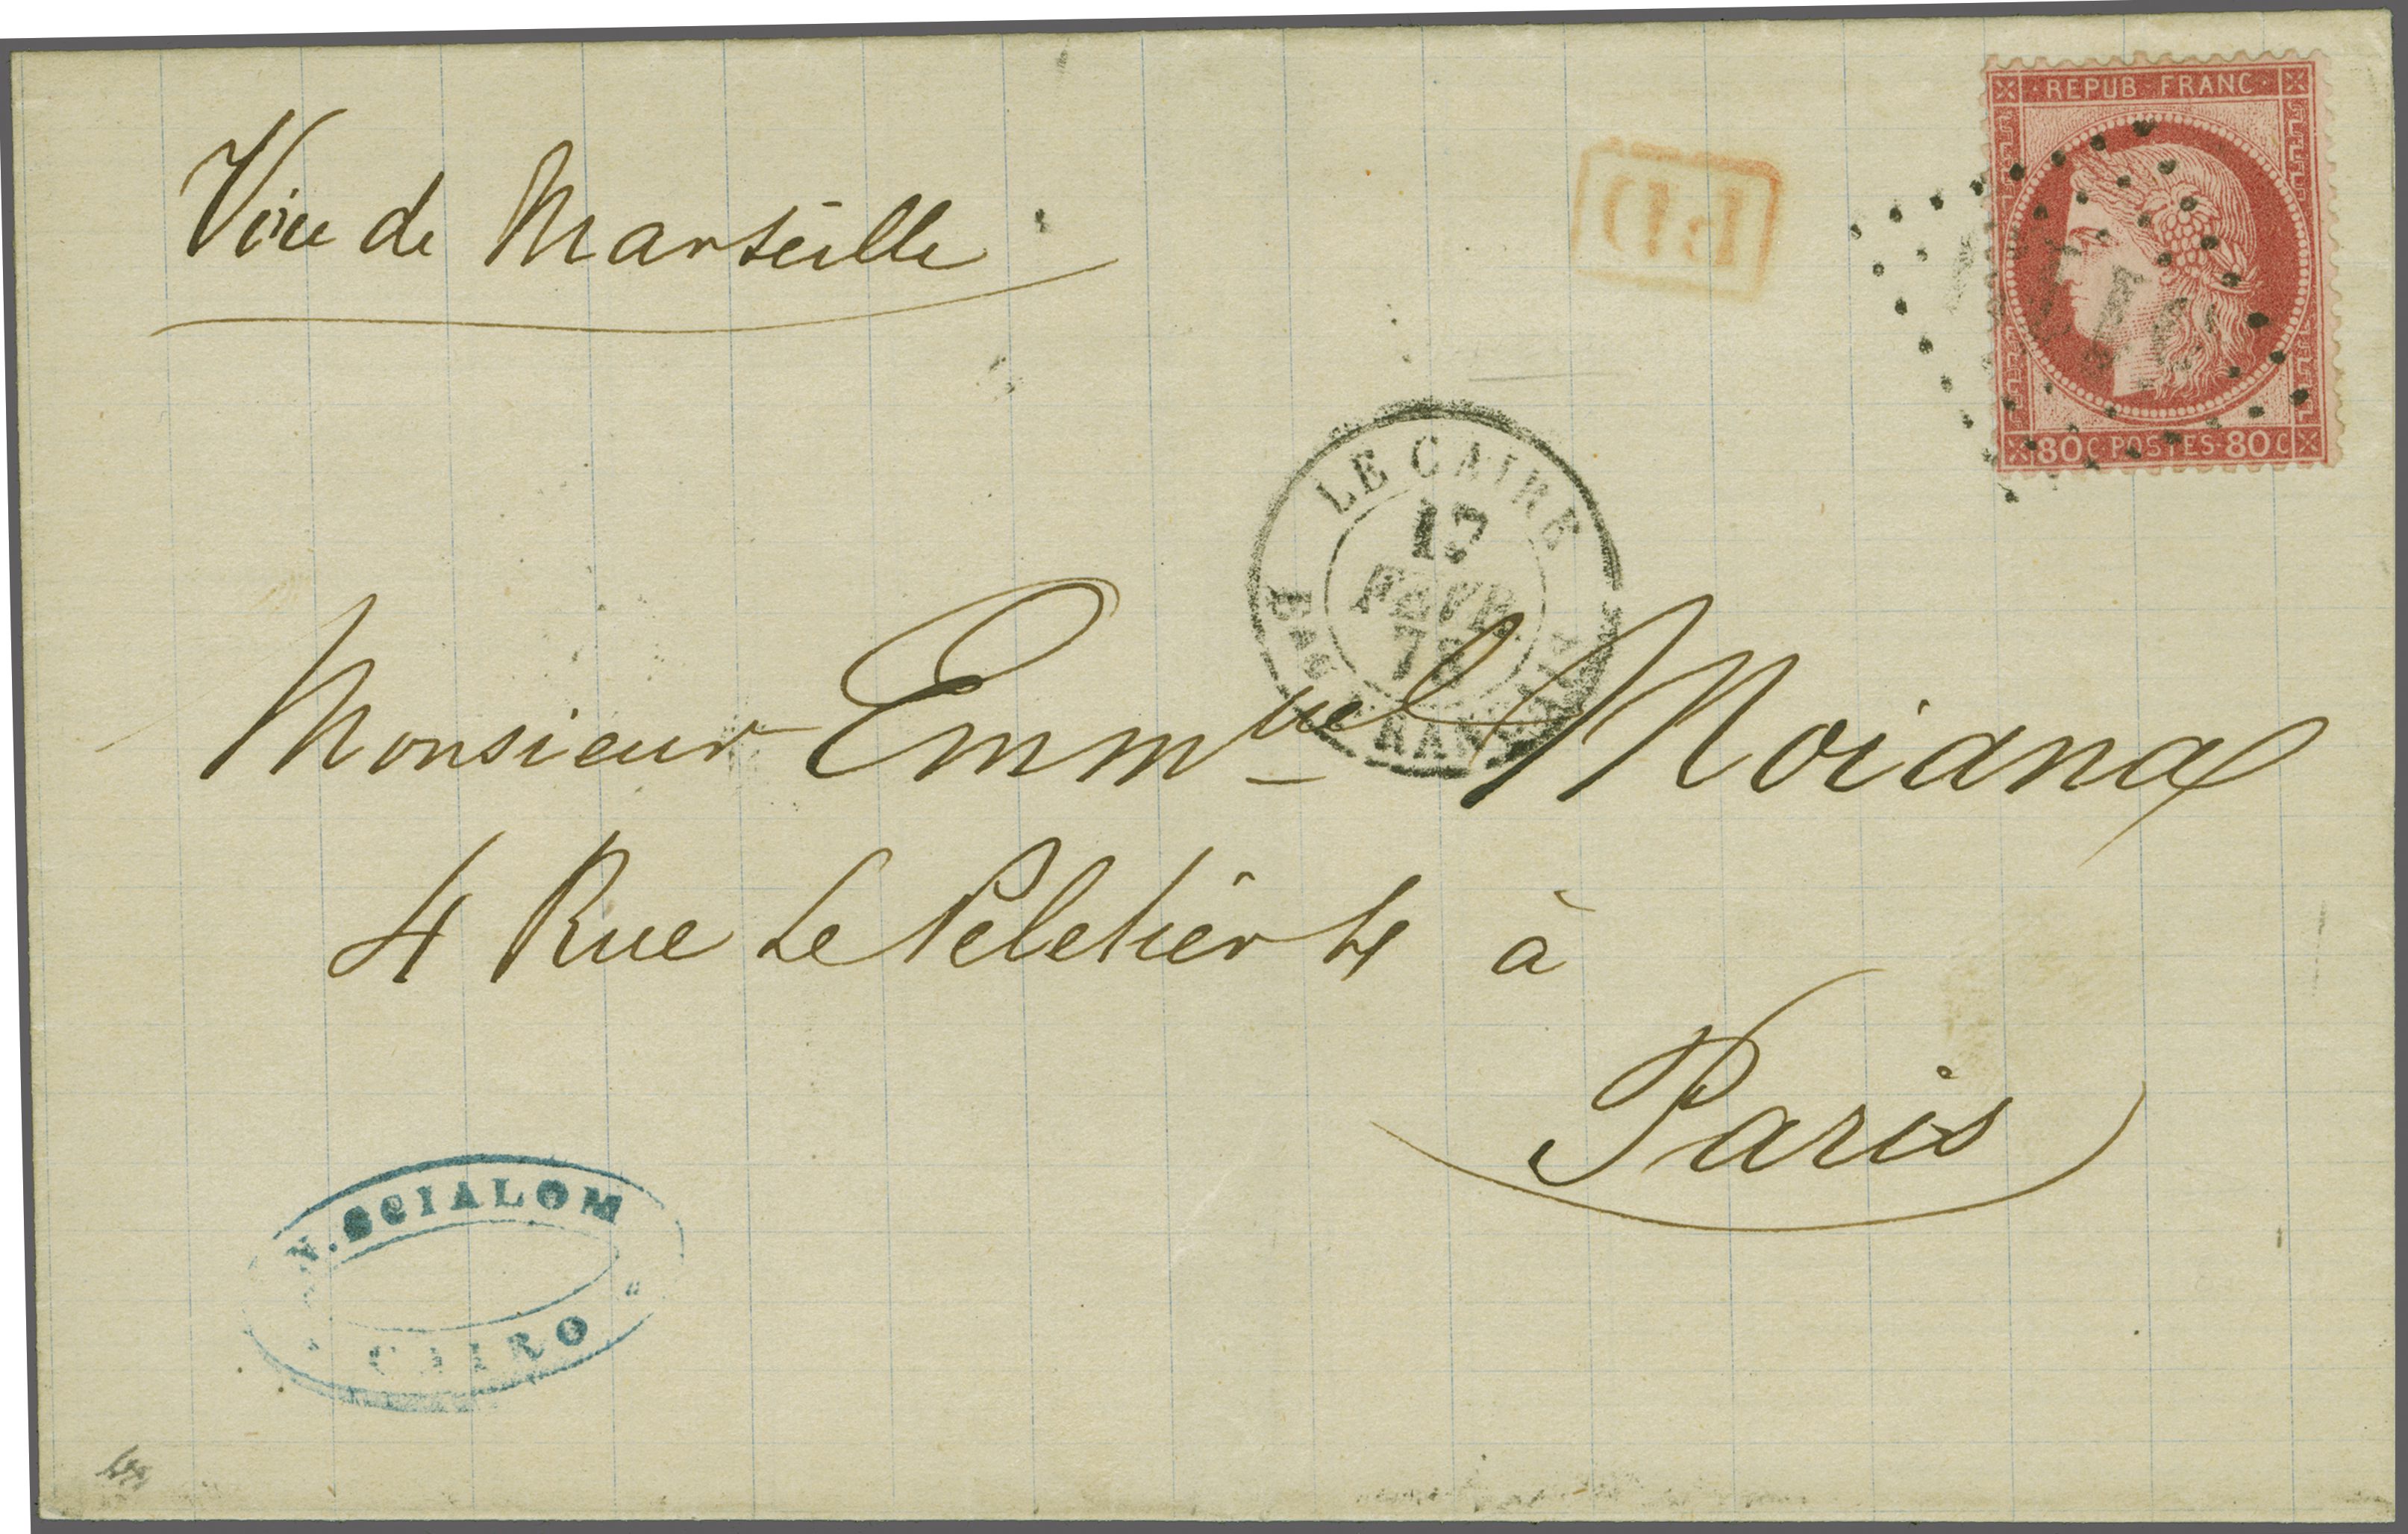 REPUB FRANC
Voie de Marseille
PD
80 C POSTES 80 C
LE CAIRE
17
FEVR.
73
BAU FRANÇAIS
Monsieur Emmuel Moiana
4 Rue Le Peletier 4 à
Paris
N. SCIALOM
CAIRO